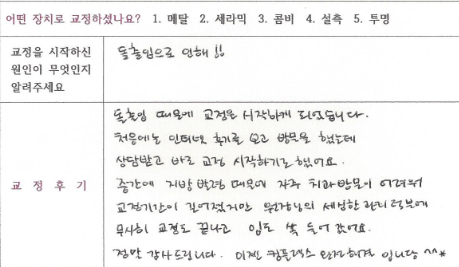 어떤 장치로 교정하셨나요? 1. 메탈 2. 세라믹 3. 콤비 4. 설측 5. 투명
교정을 시작하신
원인이 무엇인지
알려주세요
돌출입으로 인해!!
교 정 후 기
돌출입 때문에 교정을 시작하게 되었습니다.
처음에는 인터넷 후기를 보고 방문을 했는데
상담받고 바로 교정 시작하기로 했어요.
중간에 지방 발령 때문에 자주 치과방문이 어려워
교정기간이 길어졌지만 원장님의 세심한 관리덕분에
무사히 교정도 끝나고 입도 쏙 들어 갔어요.
정말 감사드립니다. 이젠 컴플렉스 완전해결 입니다 ^^*